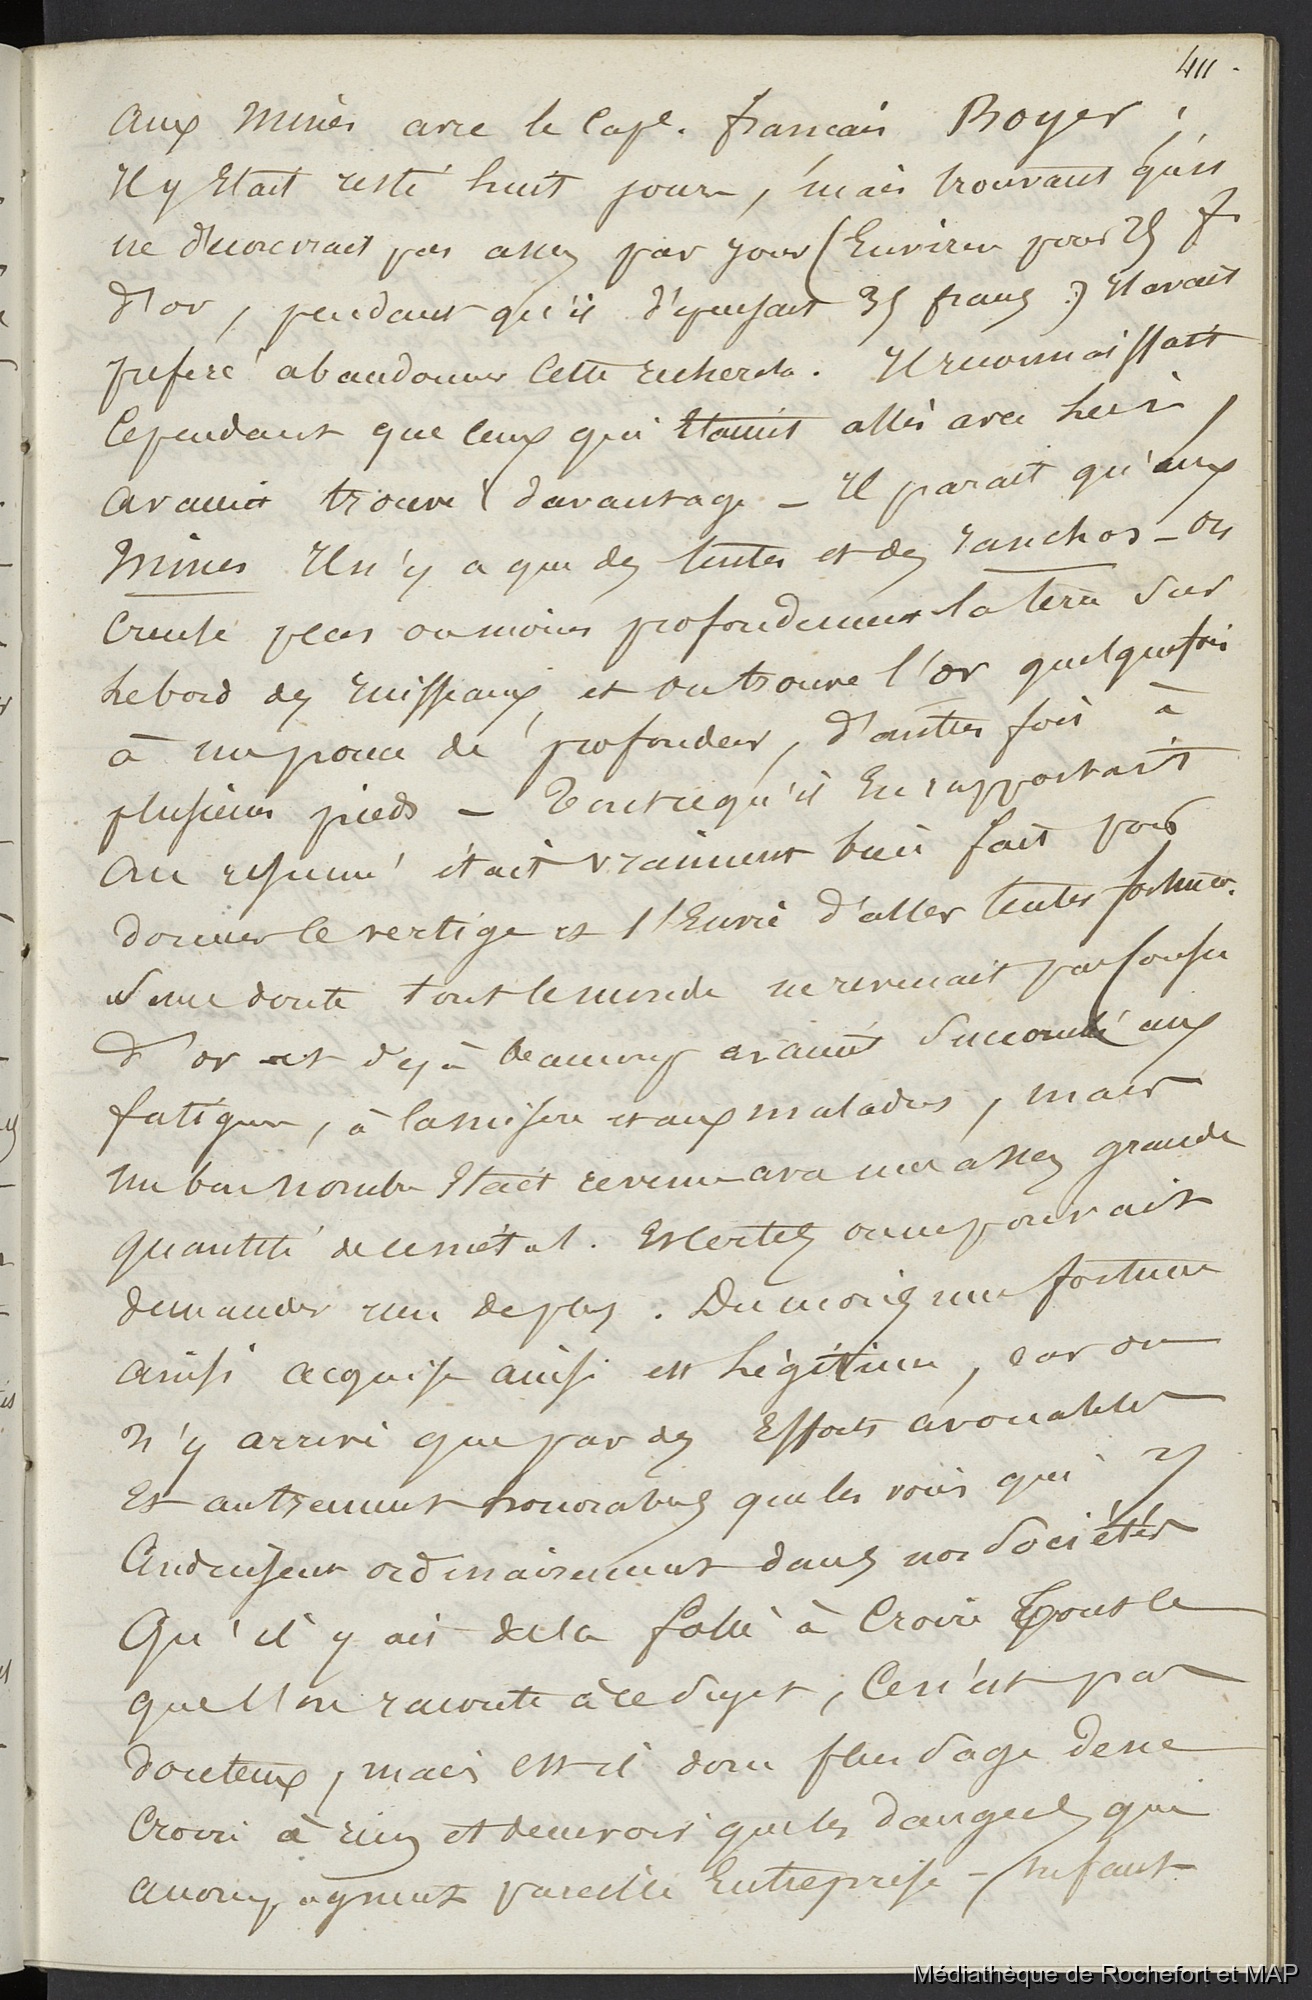 411.
aux mines avec le Cape. français Boyer ;
Il y était resté huit jours, mais trouvant qu'il
ne découvrait pas assez par jour (Environ pour 25 f.
d'or, pendant qu'il dépensait 35 francs.) Il avait
préféré abandonner cette recherche. Il reconnaissait
Cependant que ceux qui étaient allés avec lui
avaient trouvé davantage - Il parait qu'aux
Mines Il n'y a que des tentes et des ranchos - on
creuse plus ou moins profondement la terre sur
le bord des ruisseaux, et on trouve l'or quelquefois
à un pouce de profondeur, d'autres fois à
plusieurs pieds - Tout ce qu'il En rapportait
au resumé était vraiment bien fait pour
donner le vertige et l'Envie d'aller tenter fortune.
Sans doute tout le monde ne revenait pas cousu
d'or et dejà beaucoup avaient succombé aux
fatigues, à la misère et aux maladies, mais
un bon nombre était revenu avec une assez grande
quantité de ce métal. Et certes on ne pouvait
demander rien de plus. Du moins une fortune
ainsi acquise ainsi est légitime, car on
n'y arrive que par des Efforts avouables
Et autrement honorables que les voies qui y
Conduisent ordinairement dans nos Sociétés
Qu'il y ait de la folie à Croire Tout ce
que l'on raconte à ce sujet, Ce n'est pas
douteux, mais Est-il donc plus sage de ne
Croire à rien et de ne voir que les dangers qui
accompagnent pareille Entreprise -
Médiathèque de Rochefort et MAP